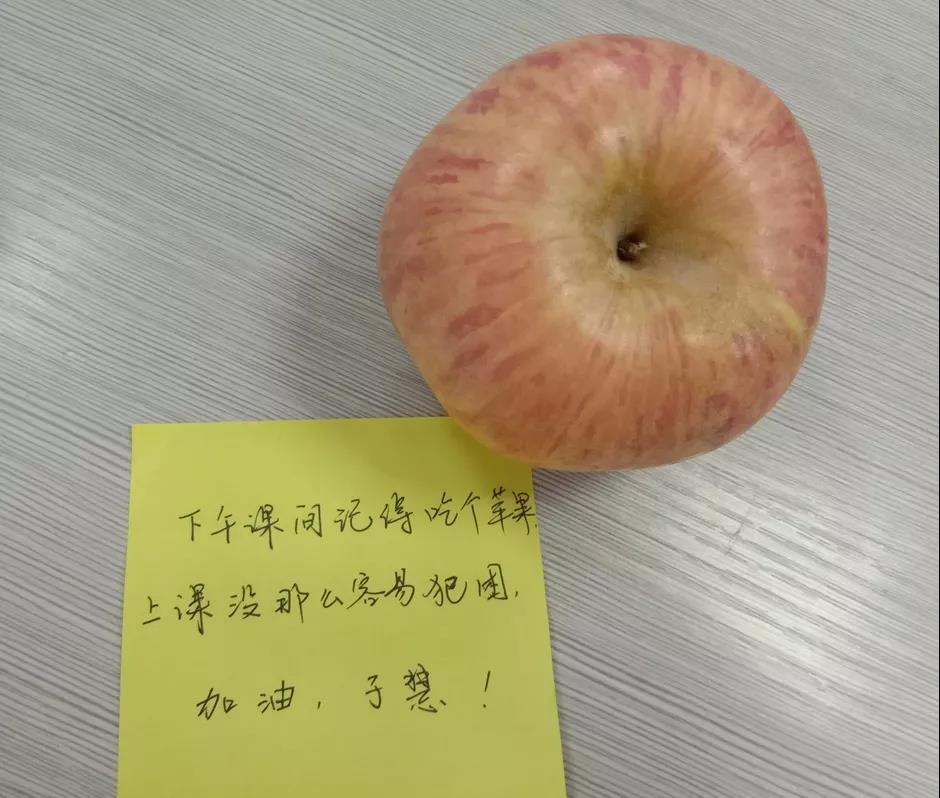 下午课间记得吃个苹果,
上课没那么容易犯困,
加油,子慧!